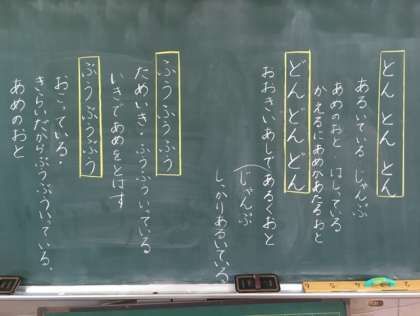 とんとんとん
あるいている じゃんぷ
あめのおと はしっている
かえるにあめがあたるおと
どんどんどん
おおきいあしであるくおと
じゃんぷ
しっかりあるいている
ふうふうふう
ためいき・ふうふういっている
いきであめをとばす
ぶうぶうぶう
おこっている・
きらいだからぶうぶういっている。
あめのおと